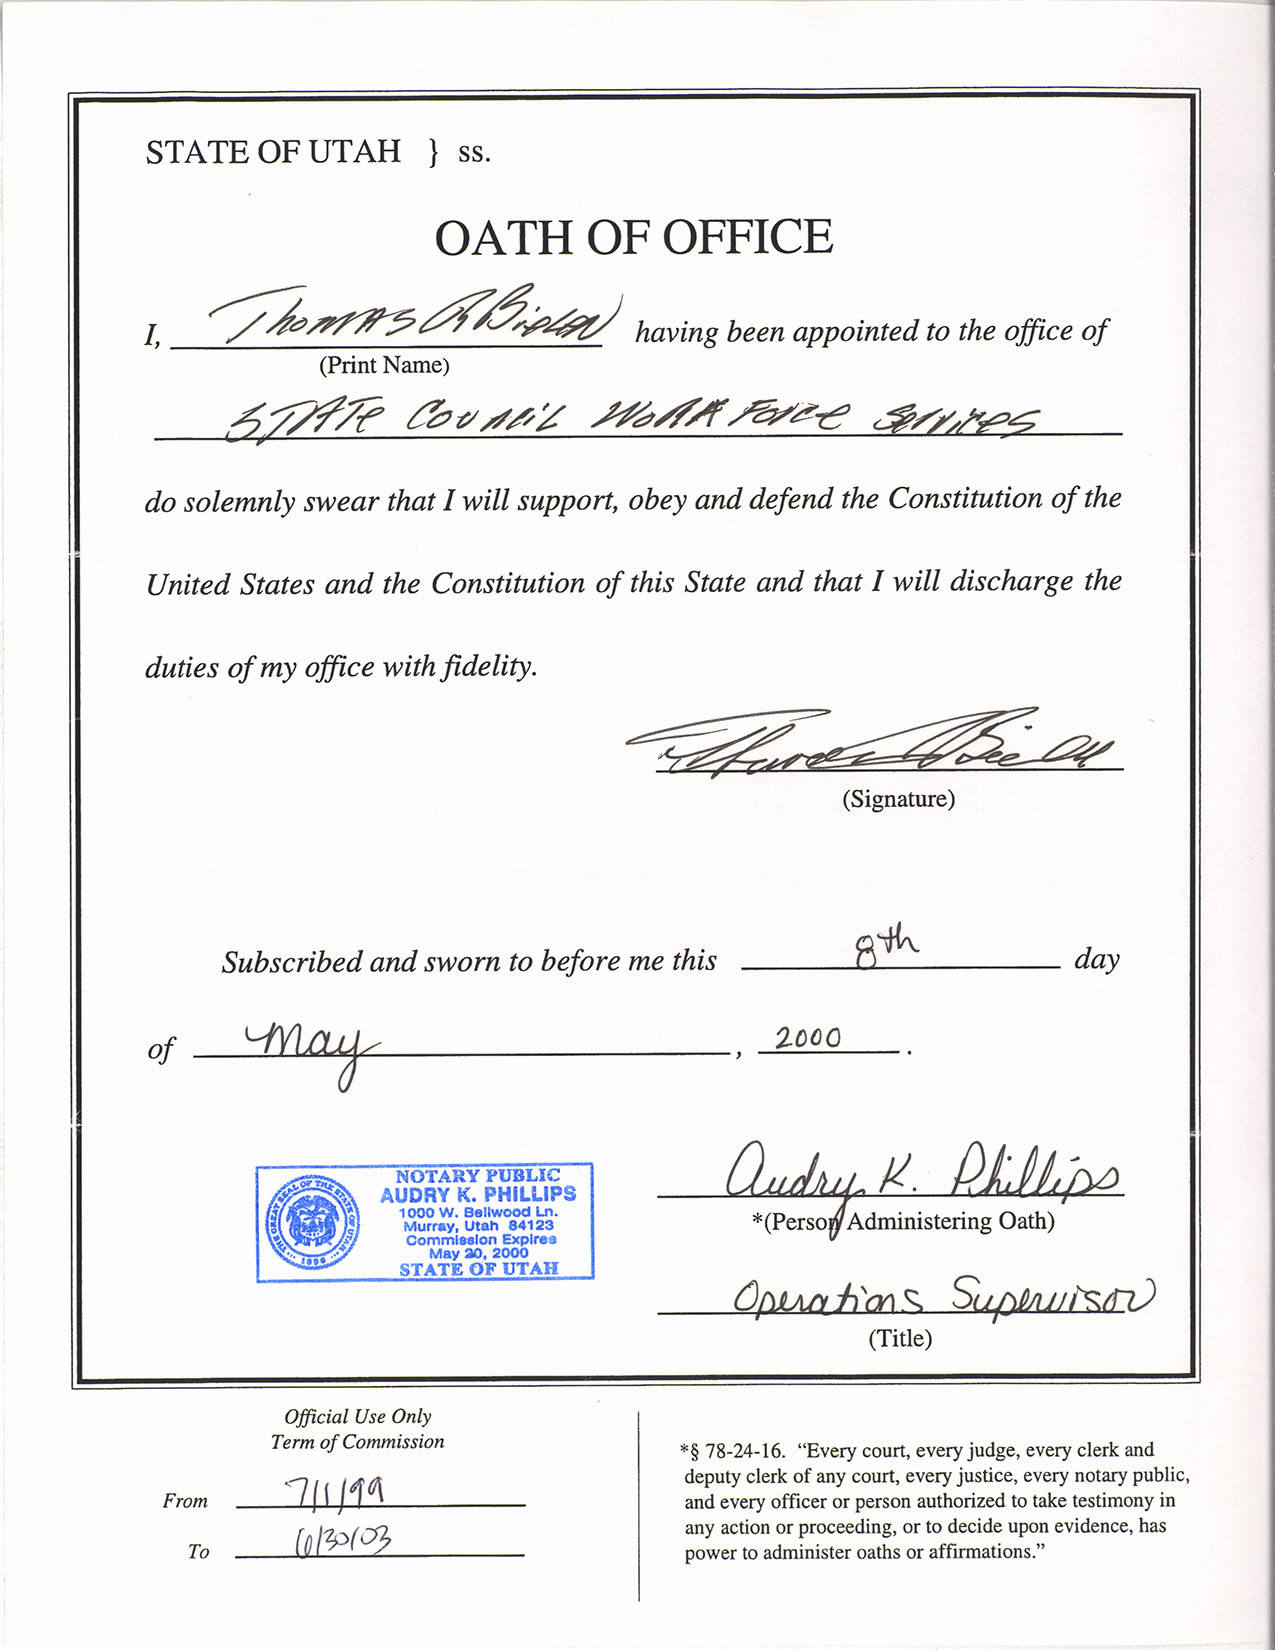 STATE OF UTAH } ss.
OATH OF OFFICE
I, Thomas R Bielen having been appointed to the office of
(Print Name)
STATE COUNCIL WORKFORCE Services
do solemnly swear that I will support, obey and defend the Constitution of the
United States and the Constitution of this State and that I will discharge the
duties of my office with fidelity.
(Signature)
Subscribed and sworn to before me this 8th day
of May, 2000.
Audry K. Phillips
*(Person Administering Oath)
Operations Supervisor
(Title)
THE GREAT SEAL OF THE STATE OF UTAH
1896
NOTARY PUBLIC
AUDRY K. PHILLIPS
1000 W. Bellwood Ln.
Murray, Utah 84123
Commission Expires
May 20, 2000
STATE OF UTAH
Official Use Only
Term of Commission
From 7/1/99
To 6/30/03
*§ 78-24-16. “Every court, every judge, every clerk and
deputy clerk of any court, every justice, every notary public,
and every officer or person authorized to take testimony in
any action or proceeding, or to decide upon evidence, has
power to administer oaths or affirmations.”